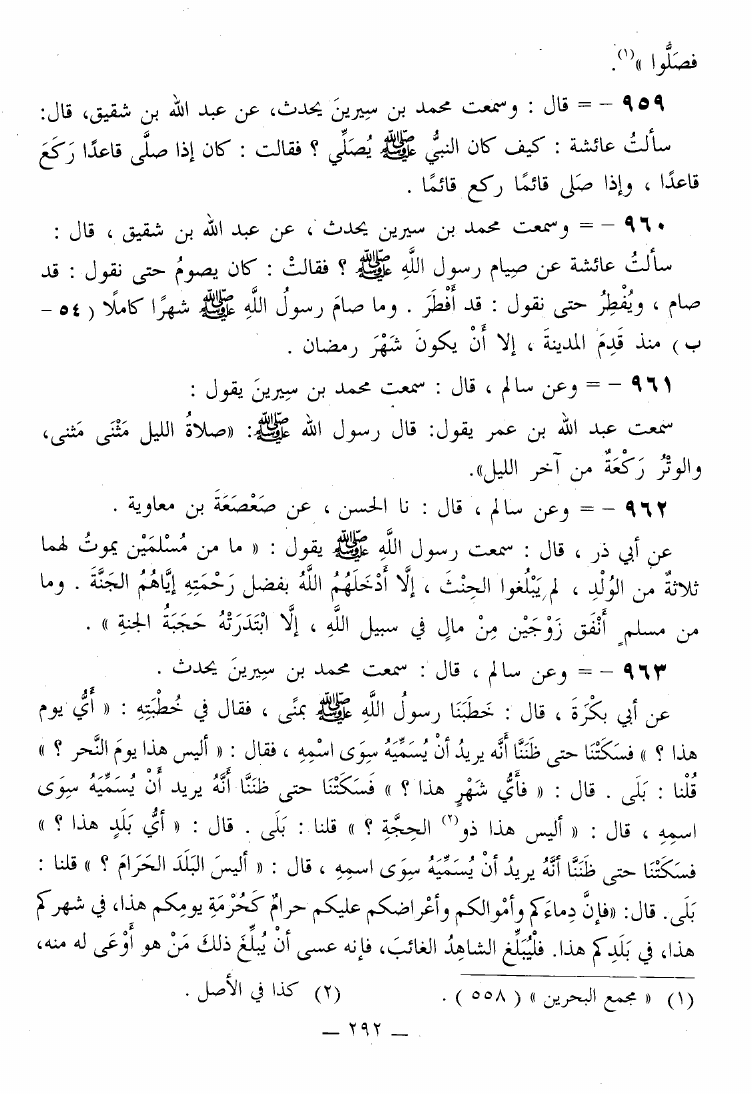 فصَلُّوا »(١).
٩٥٩ – = قال : وسمعت محمد بن سِيرينَ يحدث، عن عبد الله بن شقيق، قال:
سألتُ عائشة : كيف كان النبيُّ ﷺ يُصَلِّي ؟ فقالت : كان إذا صلَّى قاعدًا رَكَعَ
قاعدًا ، وإذا صَلى قائمًا ركع قائمًا .
٩٦٠ – = وسمعت محمد بن سيرين يحدث ، عن عبد الله بن شقيق ، قال :
سألتُ عائشة عن صِيام رسول اللَّهِ ﷺ ؟ فقالتْ : كان يصومُ حتى نقول : قد
صام ، ويُفْطِرُ حتى نقول : قد أَفْطَرَ . وما صامَ رسولُ اللَّهِ ﷺ شهرًا كاملًا ( ٥٤ –
ب ) منذ قَدِمَ المدينةَ ، إلا أَنْ يكونَ شَهْرَ رمضان .
٩٦١ – = وعن سالم ، قال : سمعت محمد بن سِيرينَ يقول :
سمعت عبد الله بن عمر يقول: قال رسول الله ﷺ: «صلاةُ الليل مَثْنَى مَثنى،
والوتْرُ رَكْعَةٌ من آخر الليل».
٩٦٢ – = وعن سالم ، قال : نا الحسن ، عن صَعْصَعَةَ بن معاوية .
عن أبي ذر ، قال : سمعت رسول اللَّهِ ﷺ يقول : « ما من مُسْلمَيْن يموتُ لهما
ثلاثةٌ من الوُلْدِ ، لم يَبْلُغوا الحِنْثَ ، إلَّا أَدْخَلَهُمُ اللَّهُ بفضل رَحْمَتِهِ إيَّاهُمُ الجَنَّةَ . وما
من مسلمٍ أَنْفَق زَوْجَيْن مِنْ مالٍ في سبيل اللَّهِ ، إلَّا ابْتَدَرَتْهُ حَجَبَةُ الجنةِ » .
٩٦٣ – = وعن سالم ، قال : سمعت محمد بن سِيرينَ يحدث .
عن أبي بكْرَةَ ، قال : خَطَبَنَا رسولُ اللَّهِ ﷺ بمنًى ، فقال في خُطْبَتِهِ : « أَيُّ يوم
هذا ؟ » فسَكَتْنَا حتى ظَنَنَّا أنَّه يريدُ أنْ يُسَمِّيَهُ سِوَى اسْمِهِ ، فقال : « أليس هذا يومَ النَّحر ؟ »
قُلْنا : بَلَى . قال : « فأَيُّ شَهْرٍ هذا ؟ » فَسَكَتْنَا حتى ظَنَنَّا أَنَّهُ يريد أَنْ يُسَمِّيَهُ سِوَى
اسمِهِ ، قال : « أليس هذا ذو(٢) الحِجَّةِ ؟ » قلنا : بَلَى . قال : « أيُّ بَلَدٍ هذا ؟ »
فسَكَتْنَا حتى ظَنَنَّا أنَّهُ يريدُ أنْ يُسَمِّيَهُ سِوَى اسمِهِ ، قال : « أليسَ البَلَدَ الحَرَامَ ؟ » قلنا :
بَلَى. قال: «فإنَّ دِماءَكم وأمْوالكم وأعْراضكم عليكم حرامٌ كَحُرْمَةِ يومِكم هذا، في شهركم
هذا، في بَلَدِكم هذا. فلْيُبَلِّغ الشاهِدُ الغائبَ، فإنه عسى أنْ يُبلِّغَ ذلكَ مَنْ هو أَوْعَى له منه،
(١) « مجمع البحرين » ( ٥٥٨ ) . (٢) كذا في الأصل .
– ٢٩٢ –